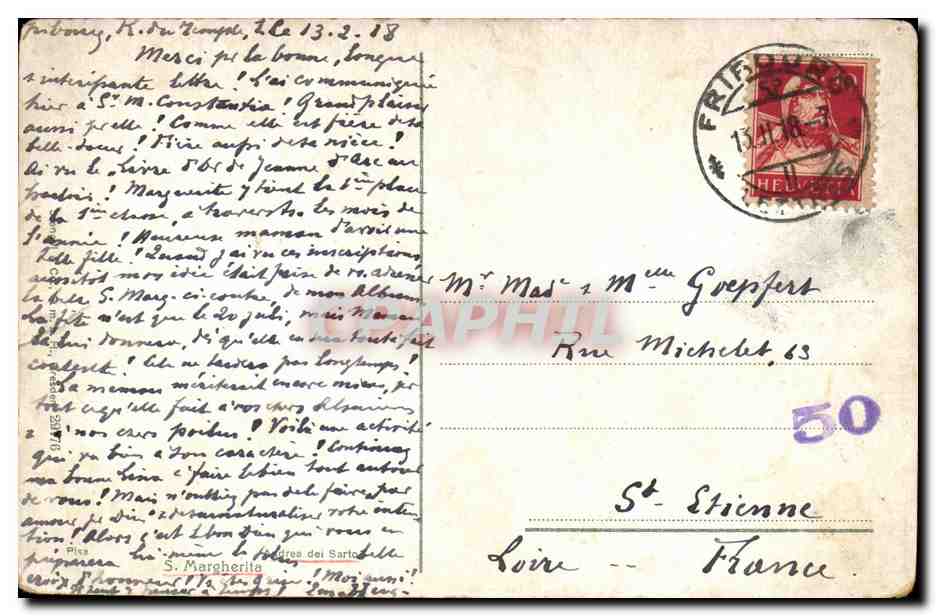 Fribourg, R. du Temple, 1 Le 13.2.18
Merci pr la bonne, longue
& intéressante lettre! L'ai communiquée
hier à Sr M. Constantia! Grand plaisir
aussi pr elle! Comme elle est fière de sa
belle-soeur! Fière aussi de sa nièce!
Ai vu le Livre d'Or de Jeanne d'Arc au
! Marguerite y tient la 1ère place
de la 1ère classe, à travers ts les mois de
l'année! Heureuse maman d'avoir une
telle fille! Quand j'ai vu ces inscriptions,
aussitôt mon idée était prise de vs adresser
la bele S. Marg. ci-contre, de mon Album.
La fête n'est que le 20 juli, mais Maman
la lui donnera, dès qu'elle en sera tout à fait
contente! Cela ne tardera pas longtemps!
La maman mériterait encore mieux, pr
tout ce qu'elle fait à vos chers Alsaciens
& à nos chers poilus! Voilà une activité
qui va bien à son caractère! Continuez
ma bonne Lina à faire le bien tout autour
de vous! Mais n'oubliez pas de le faire, par
amour pr Dieu & de surnaturaliser votre inten-
tion! Alors c'est l bon Dieu qui vous en
préparera Lui-même la belle
croix d'honneur! Moi aussi!
Pisa Andrea del Sarto
S. Margherita
FRIBOURG
13.II.18.-7
HELVETIA
Mr Made & Melle Goepfert
Rue Michelet, 63
50
St- Etienne
Loire -- France.
CPAPHIL